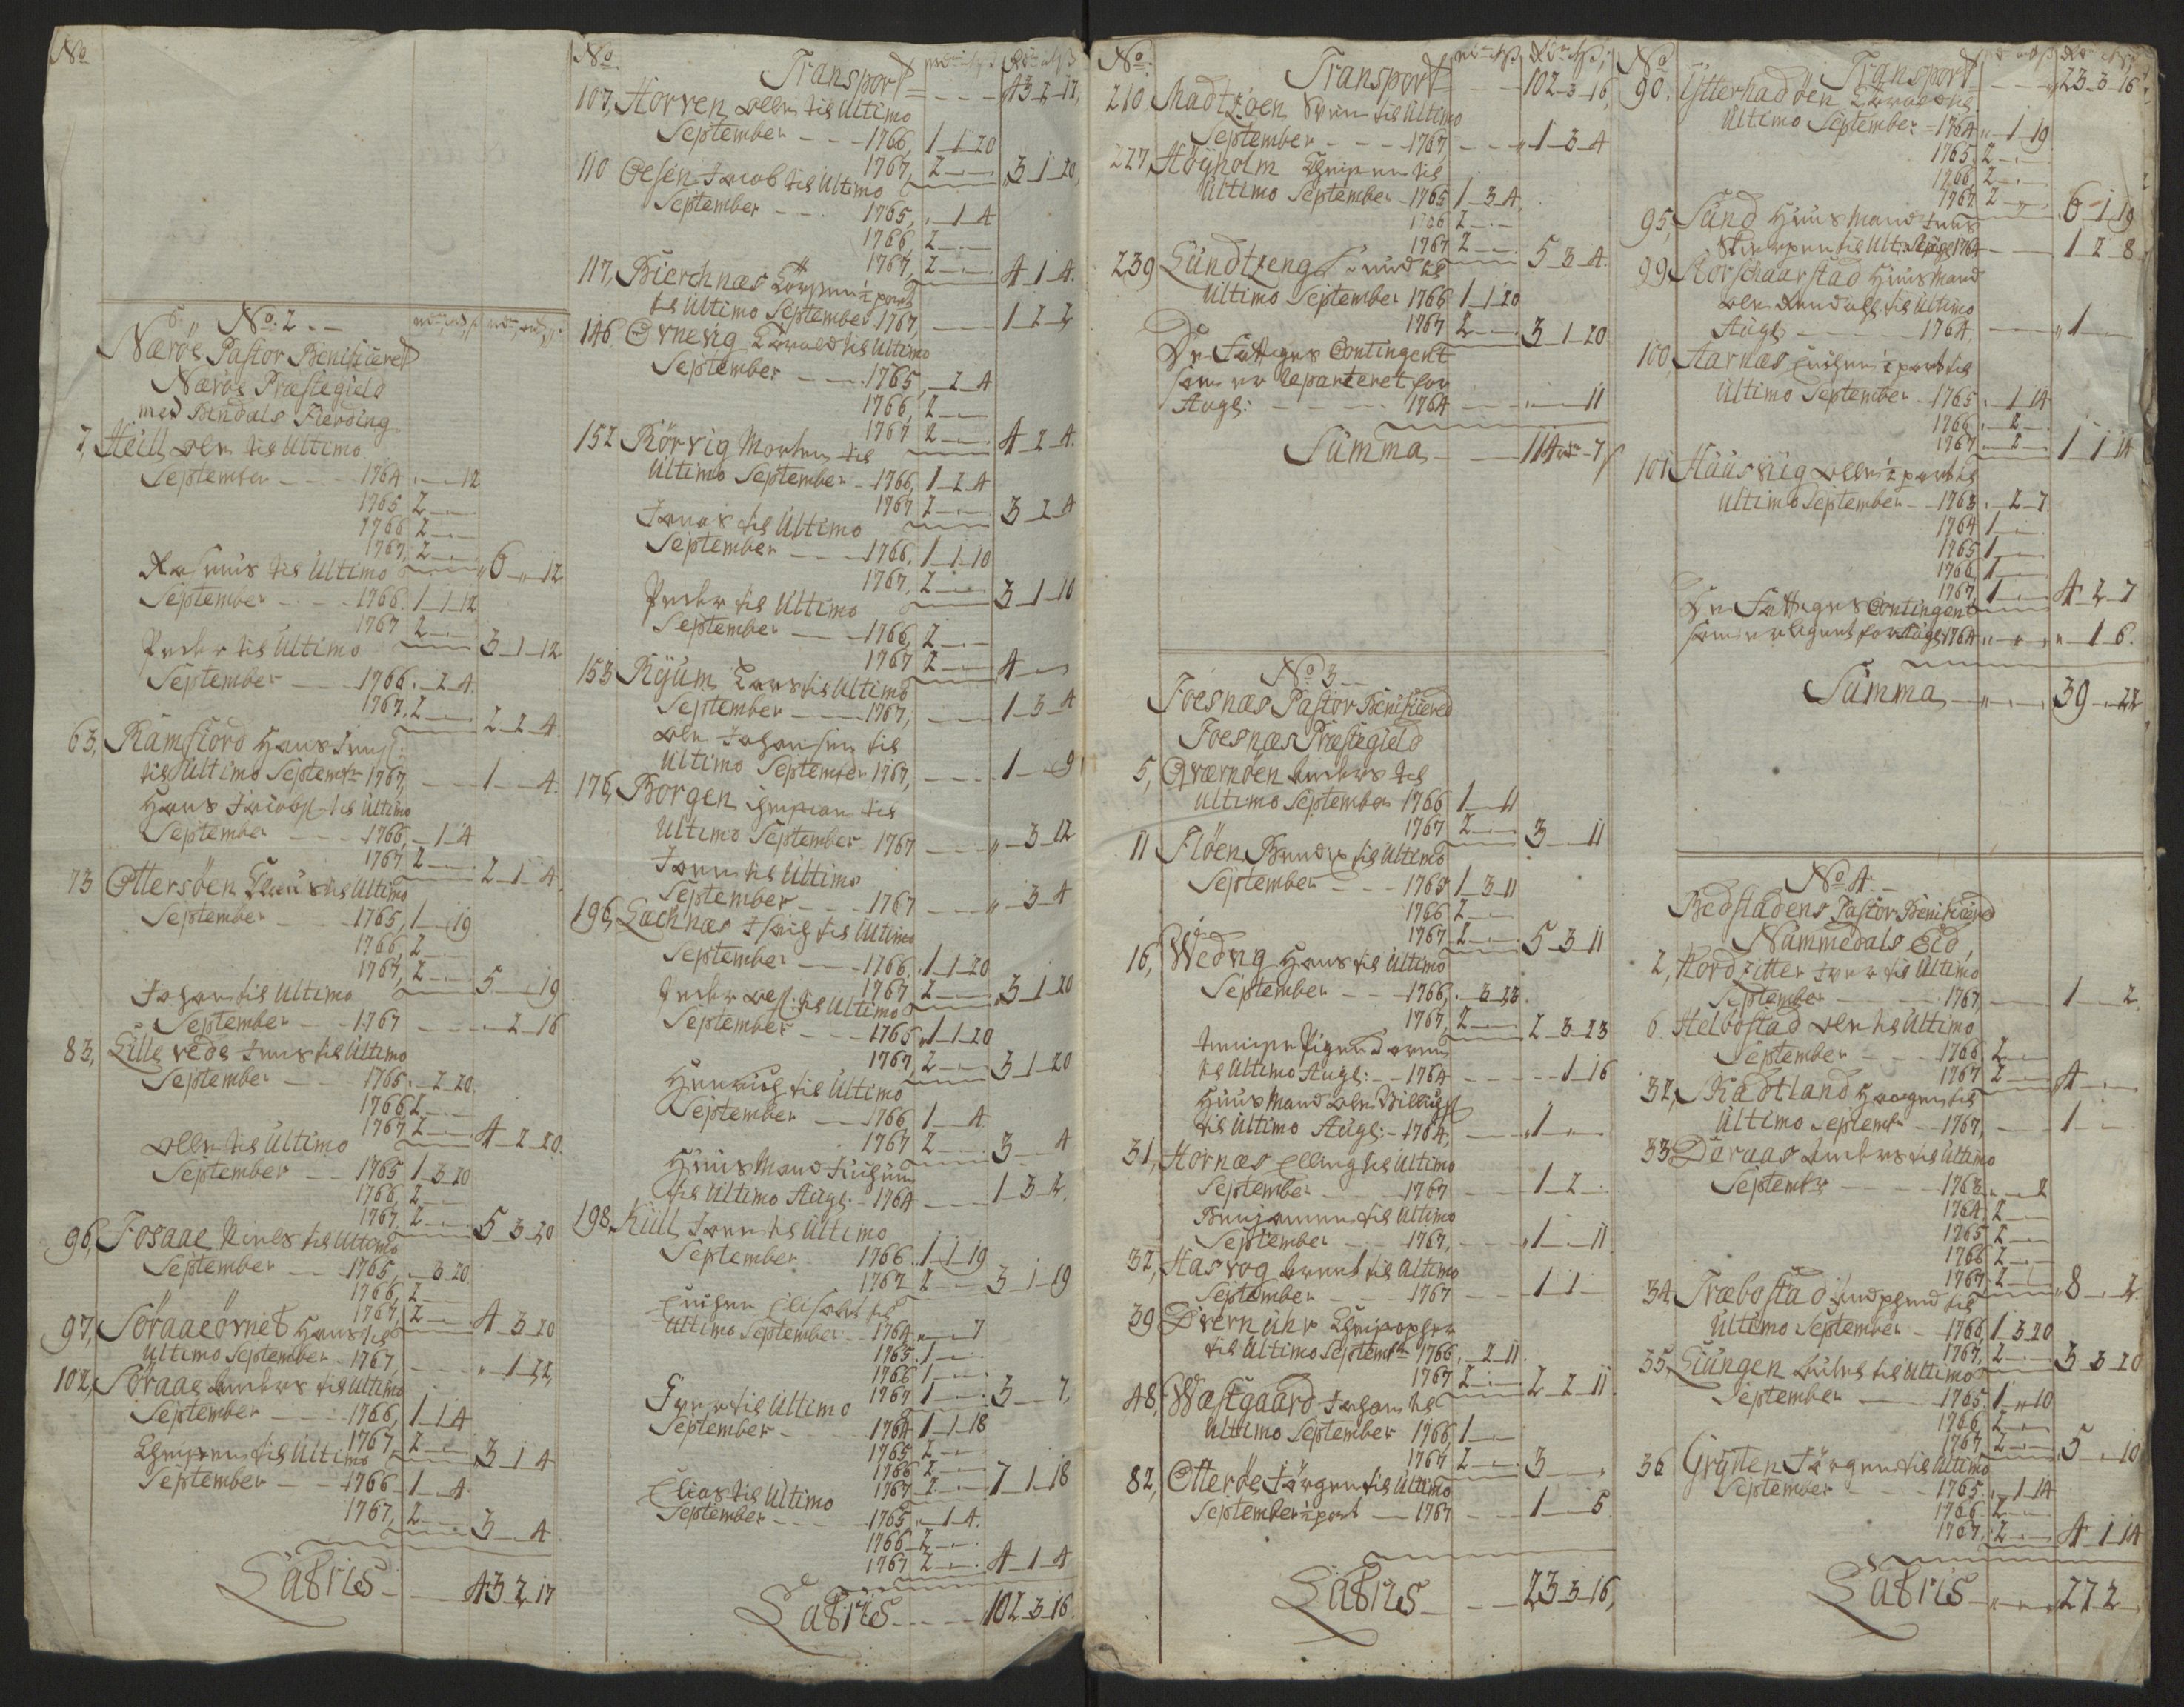 No
No. 2.
Nærøe Pastor Beneficeret
Nærøe Præstegield
med Bindals Fierding
7, Heill Ole til Ultimo
September - - 1764 „ - „ - 12
1765 2 - „ - „
1766 2 - „ - „
1767, 2 - „ - „ 6 - „ - 12
Rasmus til Ultimo
September - - 1766. 1 - 1 - 12
1767 2 - „ - „ 3 - 1 - 12
Peder til Ultimo
September - 1766. „ - 2 - 4.
1767. 2 - „ - „ 2 - 2 - 4
63, Ramfiord Hans Jens.
til Ultimo Septembr 1767, - 1 - „ - 4.
Hans Jacobs. til Ultimo
September - - 1766, „ - 1 - 4
1767 2 - „ - „ 2 - 1 - 4.
73 Ottersøen Claus til Ultimo
September - 1765, 1 - „ - 19
1766, 2 - „ - „
1767, 2 - „ - „ 5 - „ - 19
Johan til Ultimo
September - 1767 - - „ - 2 - 16
83, Lille vede Jens til Ultimo
September - 1765. „ - 2 - 20.
1766 2 - „ - „
1767 2 - „ - „ 4 - 2 - 20.
Olle til Ultimo
September - 1765 1 - 3 - 20
1766, 2 - „ - „
1767. 2 - „ - „ 5 - 3 - 20
96, Fosaae Niels til Ultimo
September - 1765, „ - 3 - 20.
1766, 2 - „ - „
1767, 2 - „ - „ 4 - 3 - 20
97, Søraaeørnet Hans til
Ultimo September 1767 - - „ - 1 - 22,
102, Søraae Anders til Ultimo
September - 1766, 1 - 1 - 4
1767, 2 - „ - „ 3 - 1 - 4
Christen til Ultimo
September - - 1766 - 1 - „ - 4.
1767, 2 - „ - „ 3 - „ - 4
Latris - - 43 - 2 - 17
No
Transport - - - 43 - 2 - 17,
107, Horven Olle til Ultimo
September - - - 1766, 1 - 1 - 20
1767, 2 - „ - „ 3 - 1 - 20,
110 Oesen Jacob til Ultimo
September - - 1765, „ - 1 - 4
1766, 2 - „ - „
1767, 2 - „ - „ 4 - 1 - 4.
117, Bierchnæs ½ part
til Ultimo September 1767, - 1 - 2 - 2
146, Ornevig til Ultimo
September - - 1765, „ - 2 - 4
1766, 2 - „ - „
1767 2 - „ - „ 4 - 2 - 4.
152 Rørvig Morten til
Ultimo September - 1766, 1 - 2 - 4
1767 2 - „ - „ 3 - 2 - 4
Jonas til Ultimo
September - - 1766. 1 - 1 - 10
1767, 2 - „ - „ 3 - 1 - 10
Peder til Ultimo
September - - 1766, 2 - „ - „
1767 2 - „ - „ 4 - „ - „
153 Ryum Lars til Ultimo
September - - 1767, - 1 - 3 - 4
Ole Johansen til
Ultimo September 1767, - - 1 - „ - 9
176, Borgen til
Ultimo September 1767 - - „ - 3 - 12
Jens til Ultimo
September - - 1767 - - „ - 3 - 4
196, Lachnæs til Ultimo
September - - 1766. 1 - 1 - 20
1767 2 - „ - „ 3 - 1 - 20
Peder Oles. til Ultimo
September - - 1765 „ 1 - 1 - 20
1767, 2 - „ - „ 3 - 1 - 20
Henrich til Ultimo
September - 1766 1 - „ - 4
1767 2 - „ - „ 3 - „ - 4
Huus Mand
til Ultimo Augs. - 1764 - - 1 - 3 - 2.
198 Kiill til Ultimo
September - 1766. 1 - 1 - 19
1767 2 - „ - „ 3 - 1 - 19
Encken Elisabet til
Ultimo September - 1764 „ - „ - 7
1765. 1 - „
1766 1 - „
1767 1 - „ - „ 3 - „ - 7,
Iver til Ultimo
September - 1764 1 - 1 - 18
1765 2 - „ - „
1766 2 - „ - „
1767 2 - „ - „ 7 - 1 - 18
Elias til Ultimo
September - - 1765 „ - 1 - 4.
1766 2 - „ - „
1767 2 - „ - „ 4 - 1 - 4
Latris - - - 102 - 3 - 16.
No.
Transport - - 102 - 3 - 16,
210 Madtzøen til Ultimo
September - - - 1767 - - - „ 1 - 3 - 4
227, Høyholm Christen til
Ultimo September - 1765 1 - 3 - 4.
1766 2 - „ - „
1767 2 - „ - „ 5 - 3 - 4.
239 Lundtzeng til
Ultimo September 1766 1 - 1 - 20
1767 2 - „ - „ 3 - 1 - 20.
De Fattiges Contingent
som er Reparteret for
Augs: - - - 1764 - - „ - „ - 11
Summa - - 114 rd - 7 s
No 3
Foesnæs Pastor Beneficered
Foesnæs Præstegield
5, Qværnøen Anders til
Ultimo September 1766 1 - „ - 11
1767 2 - „ - „ 3 - „ - 11
11 Fløen til Ultimo
September - - - 1765 1 - 3 - 11
1766 2 - „ - „
1767 2 - „ - „ 5 - 3 - 11
16, Wedvig Hans til Ultimo
September - - 1766, „ - 3 - 23.
1767, 2 - „ - „ 2 - 3 - 23
til Ultimo Augs: - 1764 - - - „ - 1 - 16
Huus Mand Ole
til Ultimo Augs: - 1764, - - „ 1 - „ - „
31, Hornæs Elling til Ultimo
September - - 1767 - - 1 - 2 - „
Benjamen til Ultimo
September - - 1767, - - „ 1 - „ - 11
32, Hasvog Arent til Ultimo
September - - 1767 - - 1 - 1 - „
39 Dvernuhr Christopher
til Ultimo Septembr 1766 „ - 2 - 11.
1767 2 - „ - „ 2 - 2 - 11.
48, Wæstgaard Johan til
Ultimo September 1766 1 - „ - „
1767 2 - „ - „ 3 - „ - „
82, Otterøe Jørgen til Ultimo
September ½ part - 1767 - - 1 - „ - 5
Latris - - - 23 - 3 - 16,
No
Transport - - 23 - 3 - 16
90. Ytterhadøen til
Ultimo September - 1764 „ - 1 - 19
1765. 2 - „ - „
1766 2 - „ - „
1767. 2 - „ - „ 6 - 1 - 19
95, Sund Huus Mand Jens
til Ult: Augs. 1764 - - 1 - 2 - 8
99, Huus Mand
Ole til Ultimo
Augs - - 1764. - - „ 1 - „
100, Aarnæs Encken ½ part til
Ultimo September - 1765 „ - 1 - 14
1766 „ - 2 - „
1767 „ - 2 - „ 1 - 1 - 14
101 Haasvig Olle ½ part til
Ultimo September - 1763 „ - 2 - 7.
1764 1 - „ - „
1765 1 - „ - „
1766, 1 - „ - „
1767. 1 - „ - „ 4 - 2 - 7
De Fattiges Contingent
som er lignet for Augs: 1764 „ - „ - „ „ - 16.
Summa - „ - „ - 39 - „ - 22
No 4.
Bedstadens Pastor Beneficered
Nummedals Eid,
2, Nordzitter Iver til Ultimo
September - - 1767, - - 1 - „ - 2.
6. Helbostad Ole til Ultimo
September - - 1766 2 - „ - „
1767 2 - „ - „ 4 - „ - „
32, Kaldtland Haagen til
Ultimo Septembr - 1767, - - 1 - „
33 Døraas Anders til Ultimo
Septembr - - 1763 „ - „ - 2
1764 2 - „ - „
1765 2 - „ - „
1766 2 - „ - „
1767 2 - „ - „ 8 - „ - 2
34. Træbostad til
Ultimo September - 1766 1 - 3 - 20
1767, 2 - „ - „ 3 - 3 - 20
35, Liungen til Ultimo
September - - 1765 1 - „ - 10
1766 2 - „ - „
1767 2 - „ - „ 5 - „ - 10
36 Grytten Jørgen til Ultimo
September - - 1765 „ - 1 - 14
1766 2 - „ - „
1767. 2 - „ - „ 4 - 1 - 14
Latris - „ - „ 27 - 2 - „